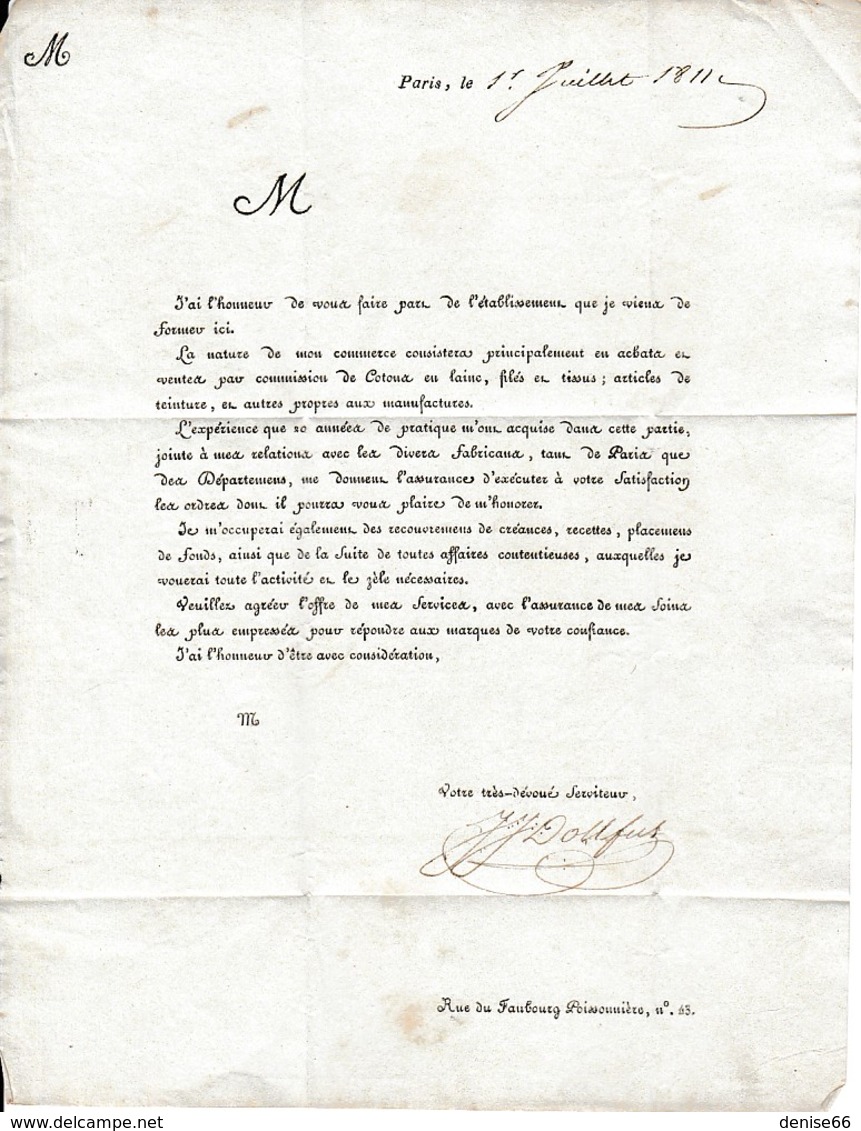 M
Paris, le 1r. Juillet 1811
M
J'ai l'honneur de vous faire part de l'établissement que je viens de
former ici.
La nature de mon commerce consistera principalement en achats et
ventes par commission de Cotons en laine, filés et tissus; articles de
teinture, et autres propres aux manufactures.
L'expérience que 20 années de pratique m'ont acquise dans cette partie,
jointe à mes relations avec les divers Fabricans, tant de Paris que
des Départemens, me donnent l'assurance d'exécuter à votre Satisfaction
les ordres dont il pourra vous plaire de m'honorer.
Je m'occuperai également des recouvremens de créances, recettes, placemens
de fonds, ainsi que de la Suite de toutes affaires contentieuses, auxquelles je
vouerai toute l'activité et le zèle nécessaires.
Veuillez agréer l'offre de mes Services, avec l'assurance de mes Soins
les plus empressés pour répondre aux marques de votre confiance.
J'ai l'honneur d'être avec considération,
M
Votre très-dévoué Serviteur,
JJ Dollfus
Rue du Faubourg Poissonnière, nº. 43.
denise66